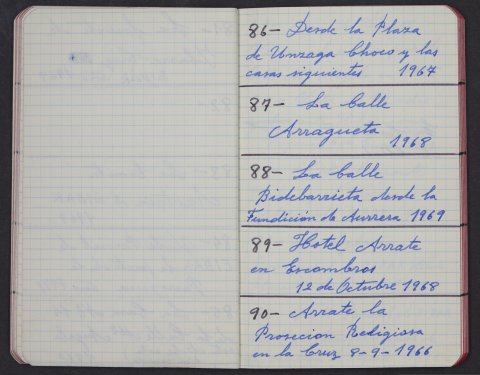 86- Desde la Plaza
de Unzaga Choco y las
casas siguientes 1967
87- La Calle
Arragueta
1968
88- La Calle
Bidebarrieta desde la
Fundición de Aurrera 1969
89- Hotel Arrate
en Escombros
12 de Octubre 1968
90- Arrate la
Prosecion Redigiosa
en la Cruz 8-9-1966